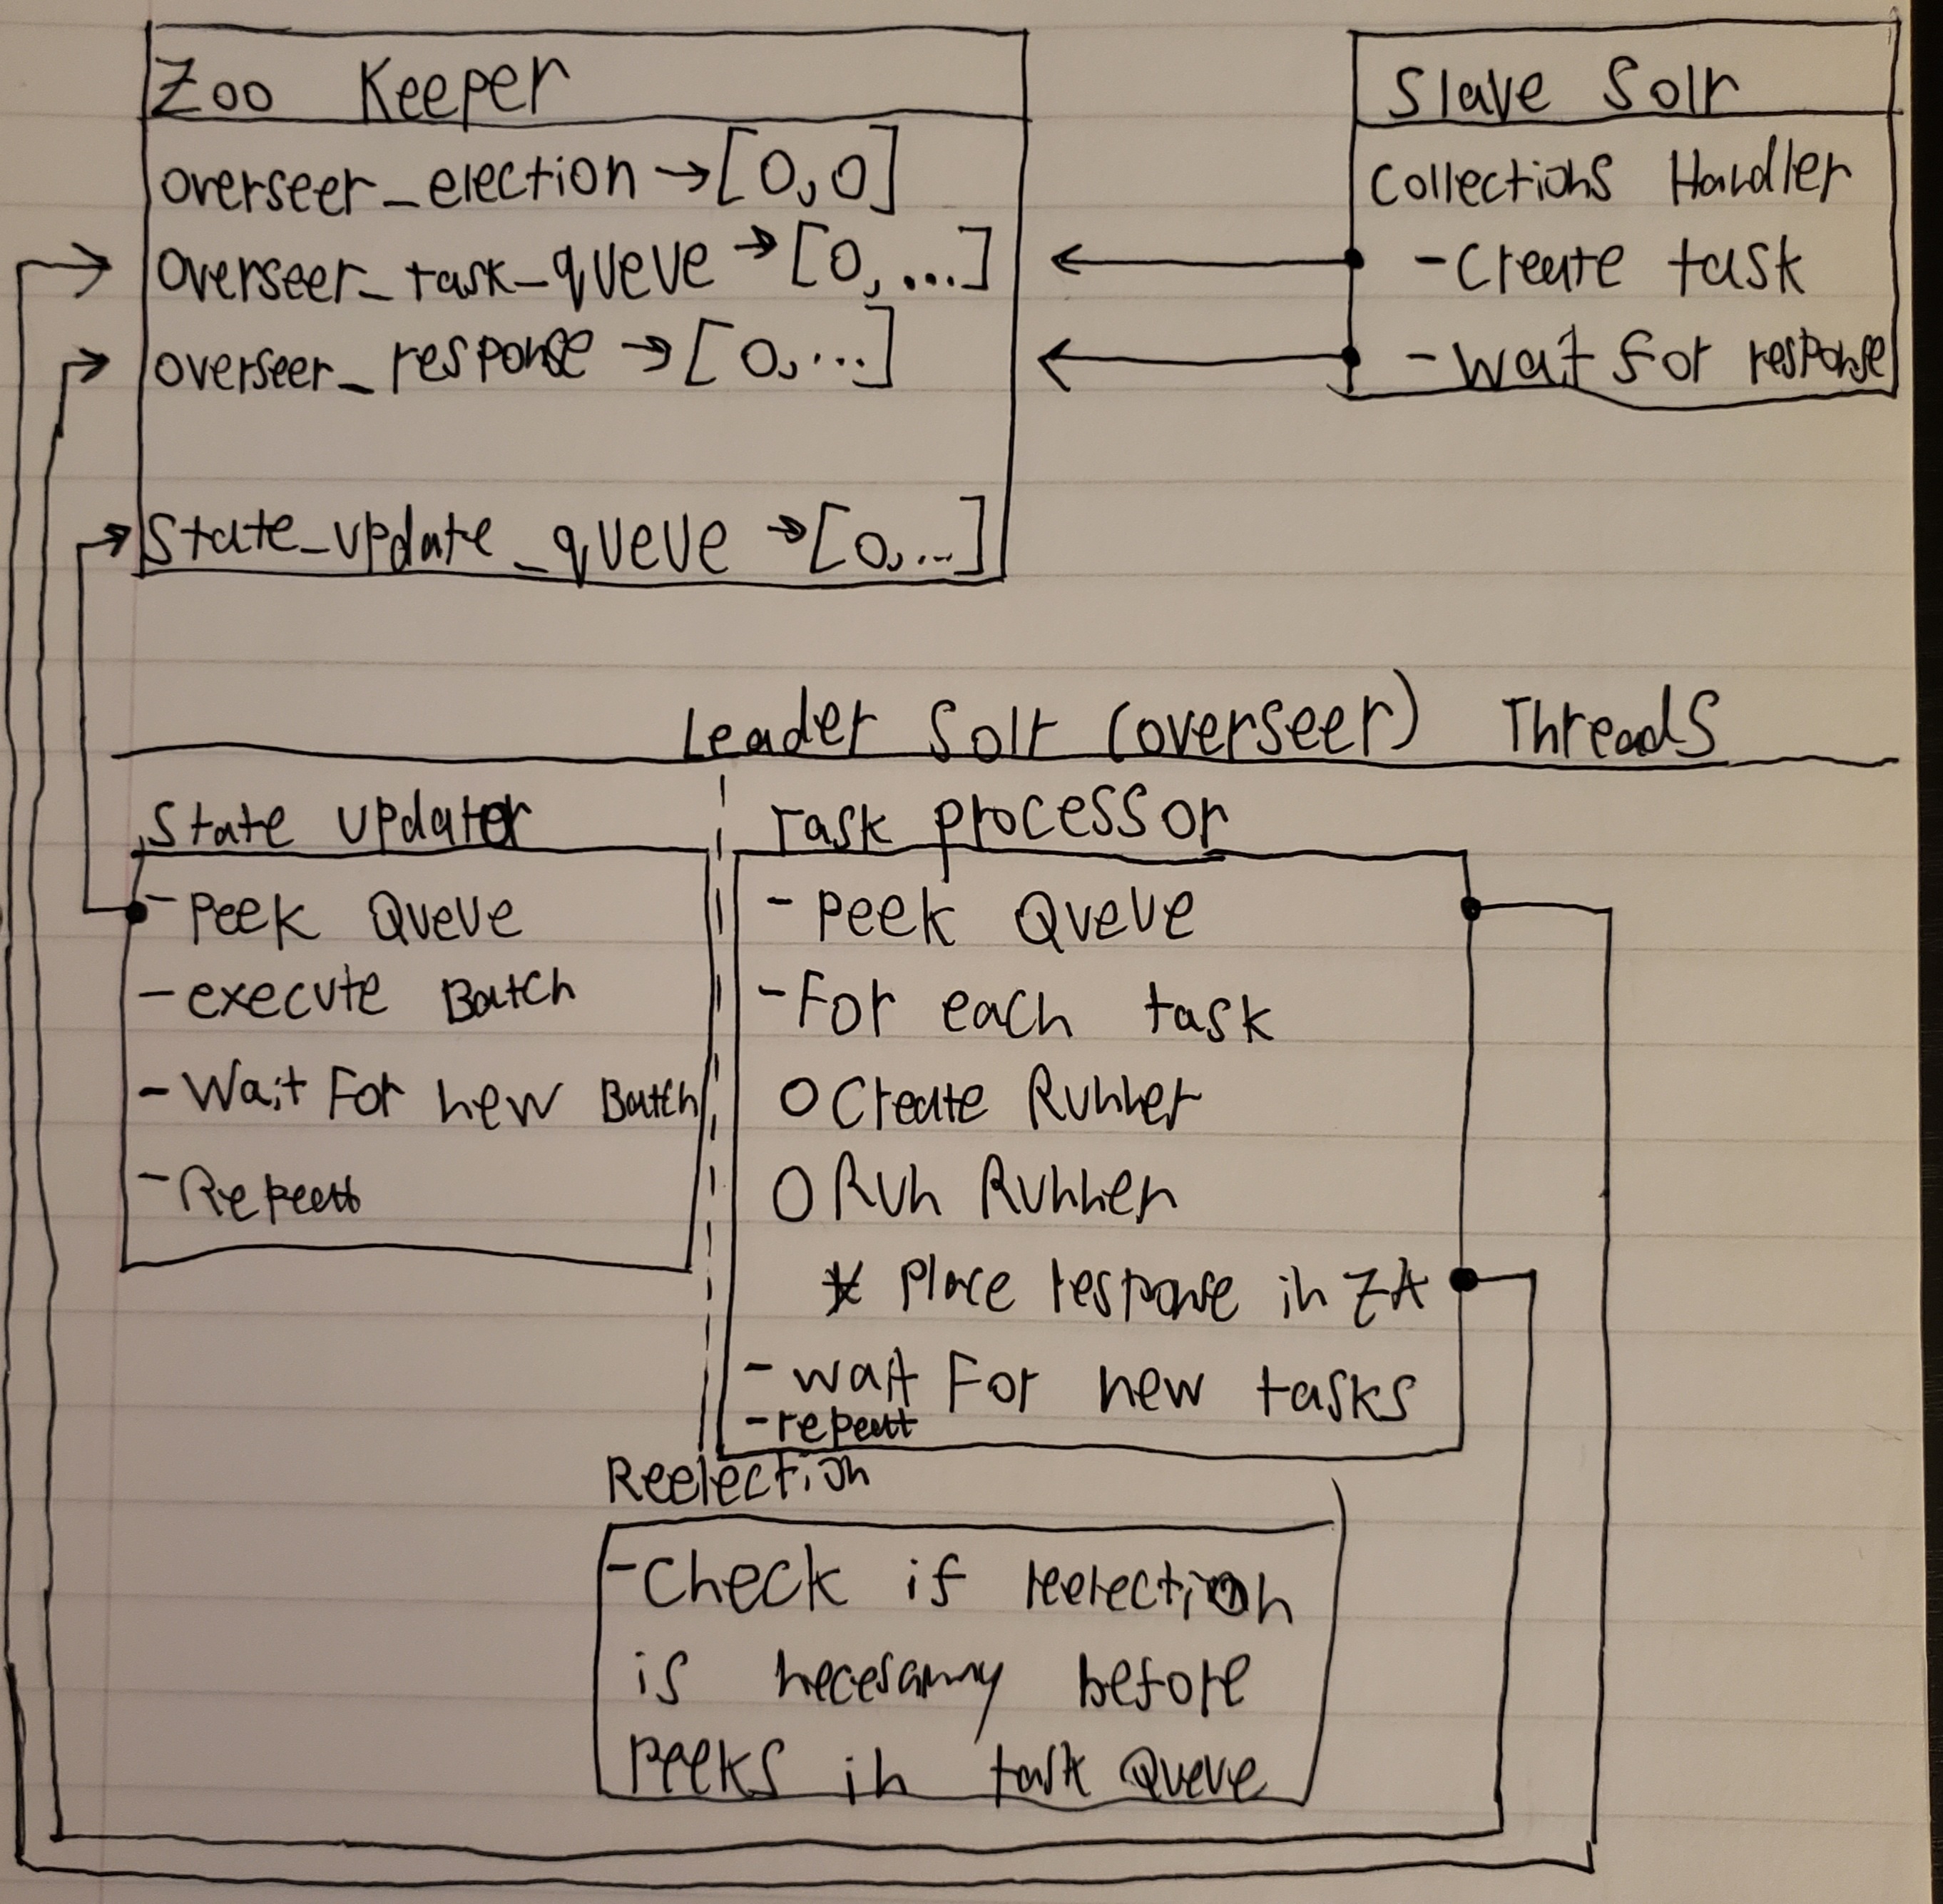 Zoo Keeper
overseer_election → [0,0]
overseer_task_queue → [0,...]
overseer_response → [0,...]
State_update_queue → [0,...]
Slave Solr
Collections Handler
- Create task
- Wait for response
Leader Solr (overseer) Threads
State updator
- Peek Queue
- execute Batch
- Wait For new Batch
- Repeat
Task processor
- Peek Queue
- For each task
O Create Runner
O Run Runner
* Place response in ZK
- wait For new tasks
- repeat
Reelection
- Check if reelection
is necesarry before
Peeks in task Queue